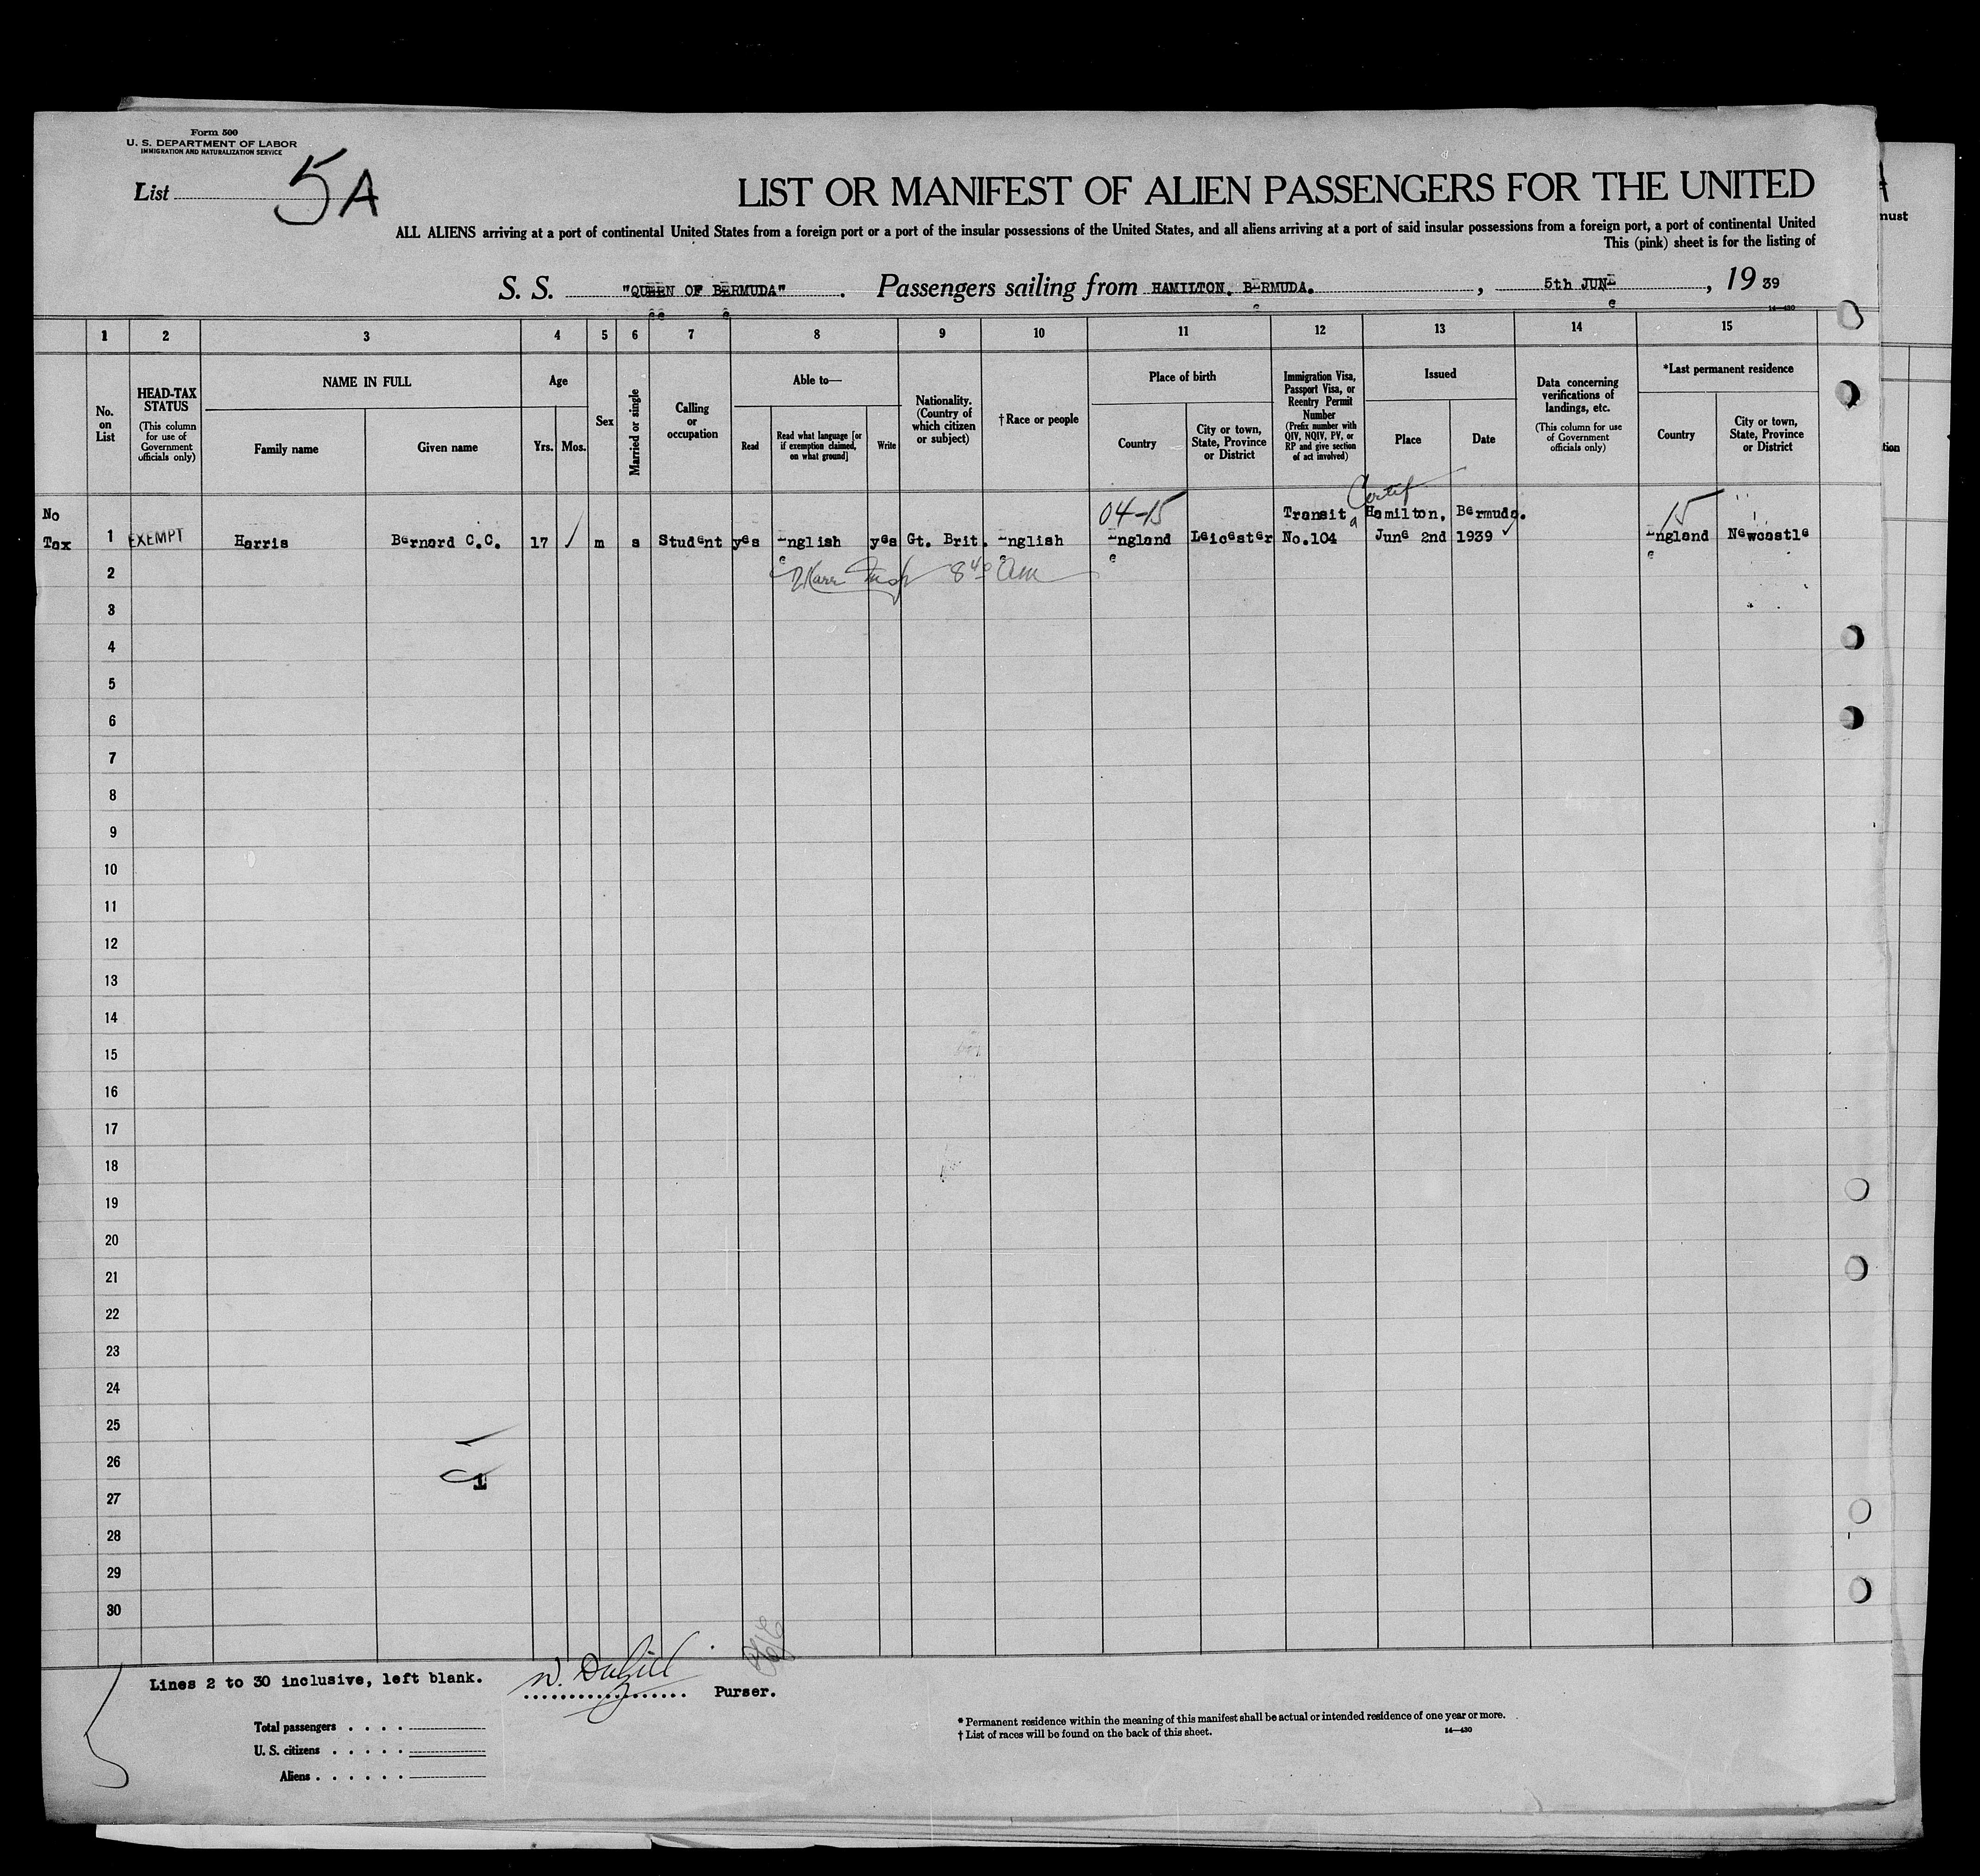 Form 500
U. S. DEPARTMENT OF LABOR
IMMIGRATION AND NATURALIZATION SERVICE
List 5A
LIST OR MANIFEST OF ALIEN PASSENGERS FOR THE UNITED
ALL ALIENS arriving at a port of continental United States from a foreign port or a port of the insular possessions of the United States, and all aliens arriving at a port of said insular possessions from a foreign port, a port of continental United
This (pink) sheet is for the listing of
must
S. S. "QUEEN OF BERMUDA". Passengers sailing from HAMILTON. BERMUDA. , 5th JUNE , 19 39
14—430
1 2 3 4 5 6 7 8 9 10 11 12 13 14 15
No. on List
HEAD-TAX STATUS
(This column for use of Government officials only)
NAME IN FULL
Family name
Given name
Age
Yrs.
Mos.
Sex
Married or single
Calling or occupation
Able to—
Read
Read what language [or if exemption claimed, on what ground]
Write
Nationality. (Country of which citizen or subject)
† Race or people
Place of birth
Country
City or town, State, Province or District
Immigration Visa, Passport Visa, or Reentry Permit Number
(Prefix number with QIV, NQIV, PV, or RP and give section of act involved)
Issued
Place
Date
Data concerning verifications of landings, etc.
(This column for use of Government officials only)
*Last permanent residence
Country
City or town, State, Province or District
tion
No 04-15 Transit Certif Hamilton, Bermuda. 15
Tax 1 EXEMPT Harris Bernard C.C. 17 m s Student yes English yes Gt. Brit. English England Leicester No.104 June 2nd 1939 England Newcastle
2 8 40 am
3
4
5
6
7
8
9
10
11
12
13
14
15
16
17
18
19
20
21
22
23
24
25
26
1
27
28
29
30
Lines 2 to 30 inclusive, left blank. Purser.
Total passengers
U. S. citizens
Aliens
* Permanent residence within the meaning of this manifest shall be actual or intended residence of one year or more.
† List of races will be found on the back of this sheet. 14—430